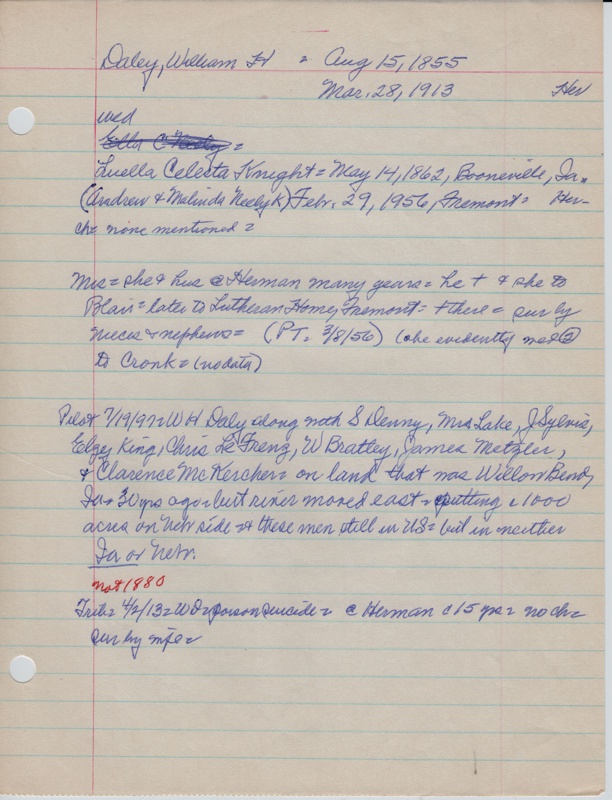 Daley, William H = Aug 15, 1855
Mar. 28, 1913 Her
wed
Ella C Neely =
Luella Celecta Knight = May 14, 1862, Booneville, Ia.
(Andrew & Malinda Neely K) Febr. 29, 1956, Fremont = Her-
ch = none mentioned =
Mrs = she & hus @ Herman many years = he + & she to
Blair = later to Lutheran Home, Fremont = + there = sur by
nieces & nephews = (PT. 3/8/56) (she evidently wed ②
to Cronk = (no data)
Pilot 7/19/97 = W H Daly along with S Denny, Mrs Lake, J Sylvis,
Elzey King, Chris Le Freng, W Bratley, James Metzler,
& Clarence McKercher = on land that was Willow Bend,
Ia = 30 yrs ago = but river moved east = putting c 1000
acres on Nebr side = & these men still in US = but in neither
Ia or Nebr.
not 1880
Trib = 4/2/13 = W D = poison suicide = @ Herman c 15 yrs = no ch =
sur by wife =